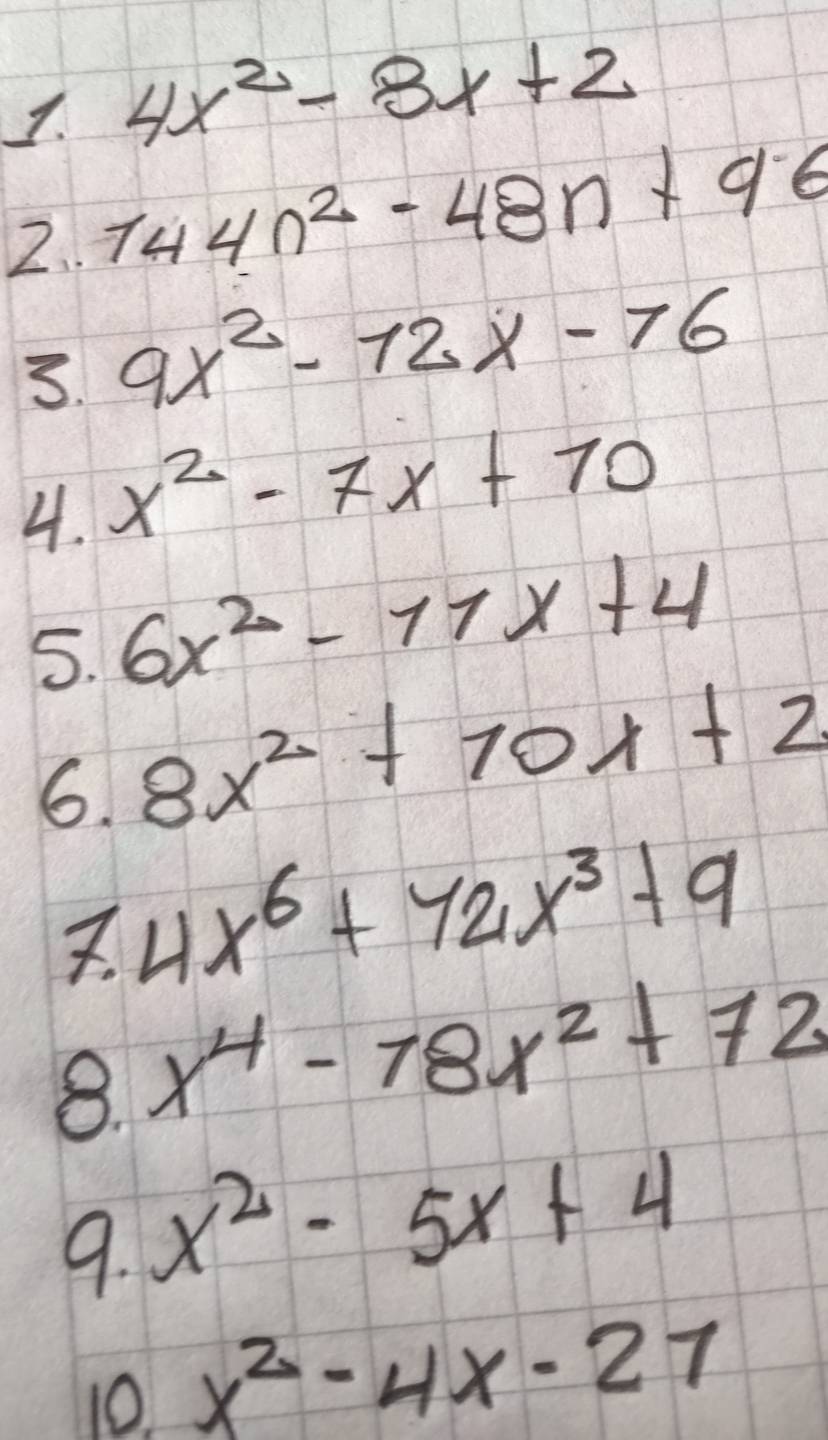 1. 4x² - 8x + 2
2. 144n² - 48n + 96
3. 9x² - 12x - 16
4. x² - 7x + 10
5. 6x² - 11x + 4
6. 8x² + 10x + 2
7. 4x⁶ + 12x³ + 9
8. x⁴ - 18x² + 72
9. x² - 5x + 4
10. x² - 4x - 21